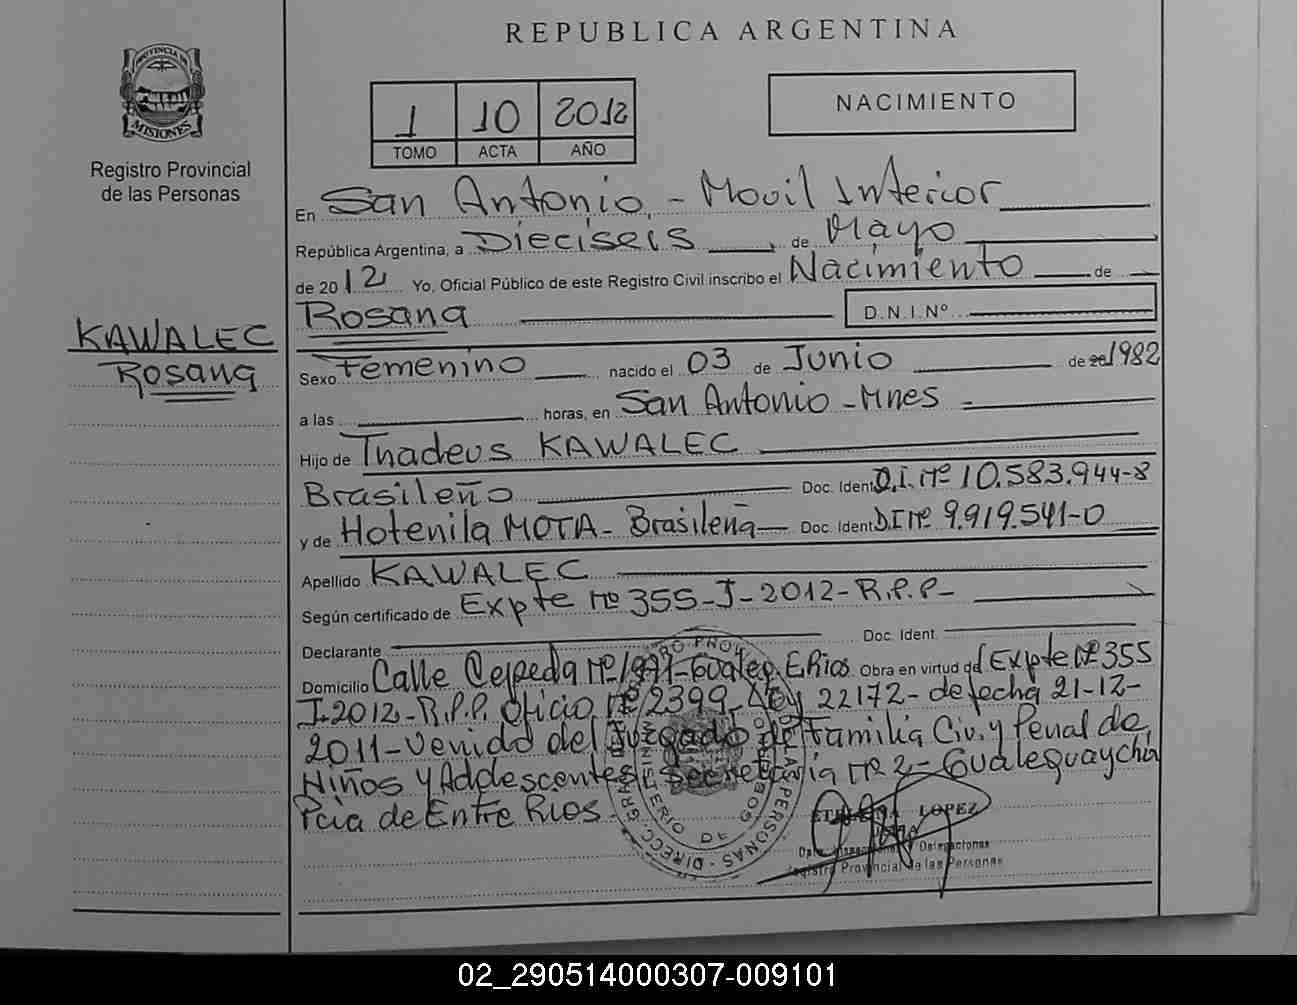 REPUBLICA ARGENTINA
PROVINCIA DE
MISIONES
Registro Provincial
de las Personas
1 10 2012
TOMO ACTA AÑO
NACIMIENTO
KAWALEC
Rosana
En San Antonio - Movil Interior
República Argentina, a Dieciseis de Mayo
de 2012 Yo, Oficial Público de este Registro Civil inscribo el Nacimiento de
Rosana D.N.I.Nº
Sexo Femenino nacido el 03 de Junio de 20 1982
a las horas, en San Antonio - Mnes
Hijo de Thadeus KAWALEC
Brasileño Doc. Ident D.I. Nº 10.583.944-8
y de Hotenila MOTA - Brasileña Doc. Ident D.I Nº 9.919.541-0
Apellido KAWALEC
Según certificado de Expte Nº 355-J-2012-R.P.P-
Declarante Doc. Ident.
Domicilio Calle Cepeda Nº 1971-Gualeg. E.Rios Obra en virtud de Expte Nº 355
J-2012-R.P.P. Oficio Nº 2399-Ley 22172-de fecha 21-12-
2011-Venido del Juzgado de Familia Civ. y Penal de
Niños y Adolescentes Secretaría Nº 2-Gualeguaychú
Pcia de Entre Rios.
LOPEZ
Dpto. Inspecciones y Delegaciones
Registro Provincial de las Personas
02_290514000307-009101